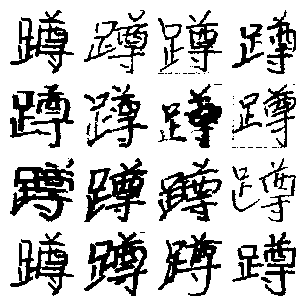 蹲蹲蹲蹲
蹲蹲蹲蹲
蹲蹲蹲蹲
蹲蹲蹲蹲